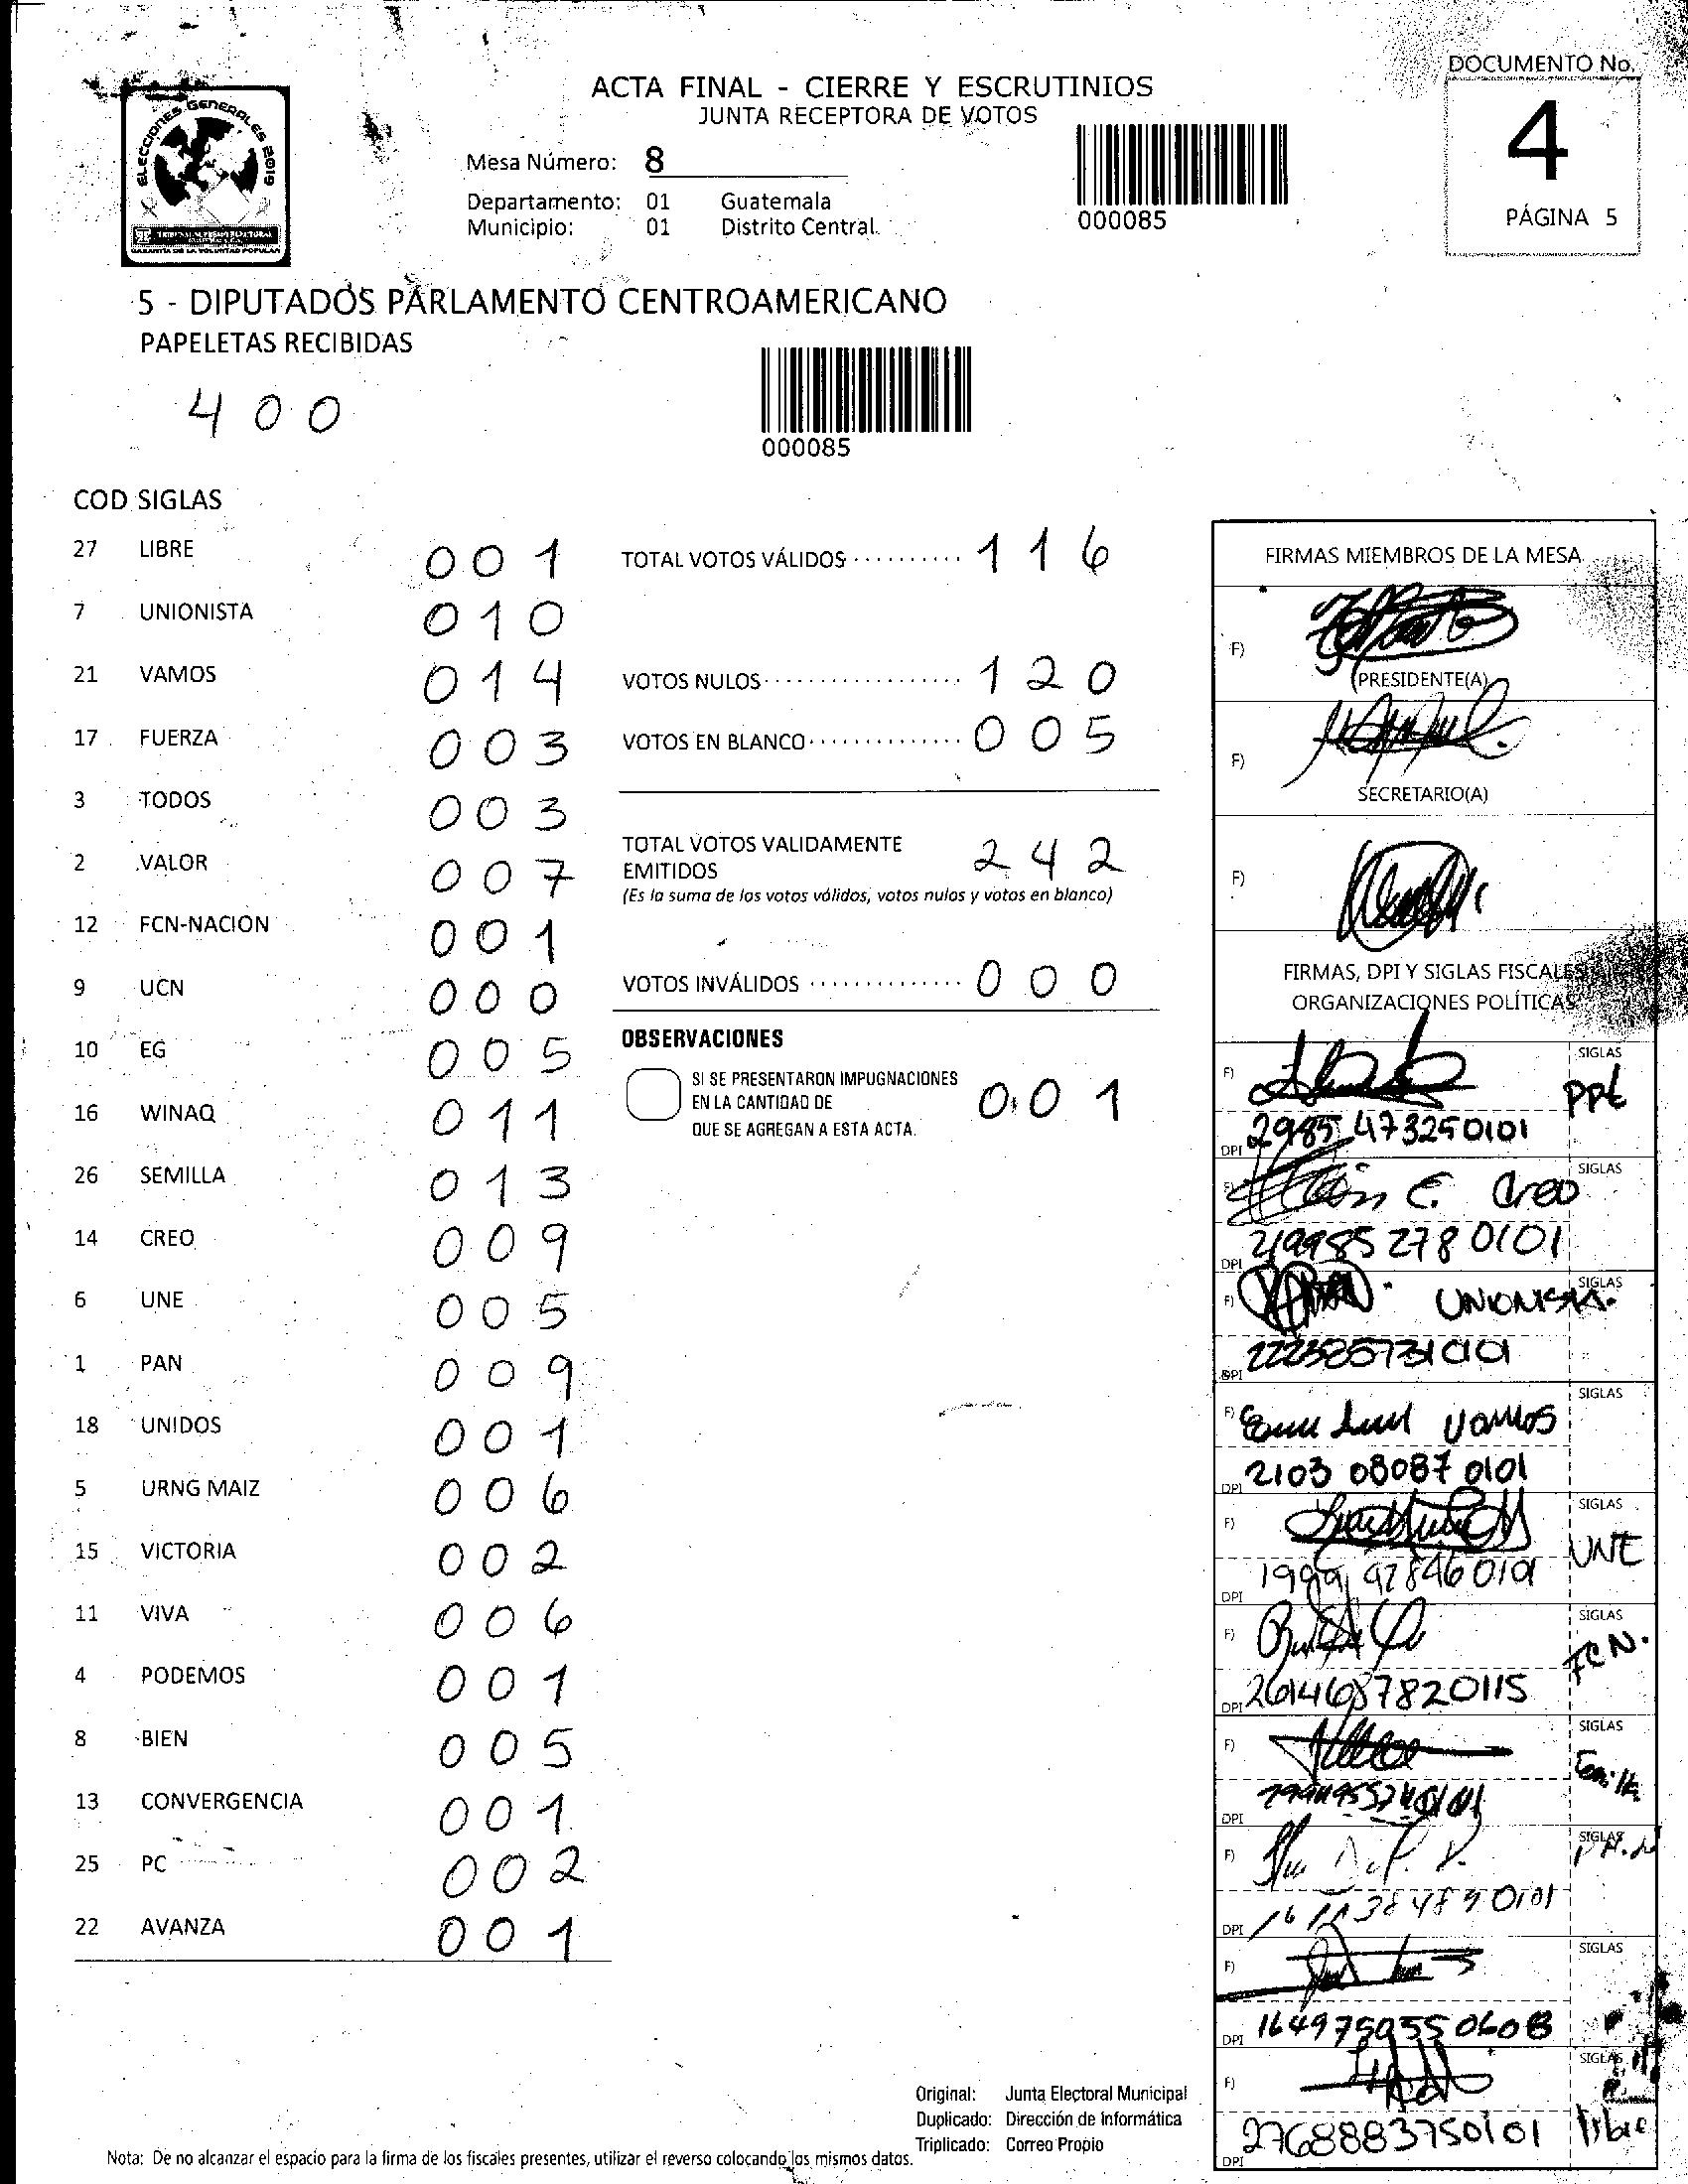 DOCUMENTO No.
4
PÁGINA 5
ELECCIONES GENERALES 2019
ACTA FINAL - CIERRE Y ESCRUTINIOS
JUNTA RECEPTORA DE VOTOS
Mesa Número: 8
Departamento: 01 Guatemala
Municipio: 01 Distrito Central
000085
5 - DIPUTADOS PARLAMENTO CENTROAMERICANO
PAPELETAS RECIBIDAS
400
000085
COD SIGLAS
27 LIBRE 001
7 UNIONISTA 010
21 VAMOS 014
17 FUERZA 003
3 TODOS 003
2 VALOR 007
12 FCN-NACION 001
9 UCN 000
10 EG 005
16 WINAQ 011
26 SEMILLA 013
14 CREO 009
6 UNE 005
1 PAN 009
18 UNIDOS 001
5 URNG MAIZ 006
15 VICTORIA 002
11 VIVA 006
4 PODEMOS 001
8 BIEN 005
13 CONVERGENCIA 001
25 PC 002
22 AVANZA 001
TOTAL VOTOS VÁLIDOS 116
VOTOS NULOS 120
VOTOS EN BLANCO 005
TOTAL VOTOS VALIDAMENTE
EMITIDOS 242
(Es la suma de los votos válidos, votos nulos y votos en blanco)
VOTOS INVÁLIDOS 000
OBSERVACIONES
SI SE PRESENTARON IMPUGNACIONES
EN LA CANTIDAD DE 001
QUE SE AGREGAN A ESTA ACTA.
FIRMAS MIEMBROS DE LA MESA
F)
PRESIDENTE(A)
F)
SECRETARIO(A)
F)
FIRMAS, DPI Y SIGLAS FISCALES
ORGANIZACIONES POLÍTICAS
F) SIGLAS
ppt
DPI 2985473250101
F) SIGLAS
Creo
DPI
F) SIGLAS
UNIONISTA.
DPI
F) SIGLAS
Vamos
DPI 2103 08087 0101
F) SIGLAS
UNE
DPI
F) SIGLAS
FCN.
DPI 2614687820115
F) SIGLAS
DPI
F) SIGLAS
DPI
F) SIGLAS
DPI
F) SIGLAS
libre
DPI 2768883750101
Original: Junta Electoral Municipal
Duplicado: Dirección de Informática
Triplicado: Correo Propio
Nota: De no alcanzar el espacio para la firma de los fiscales presentes, utilizar el reverso colocando los mismos datos.